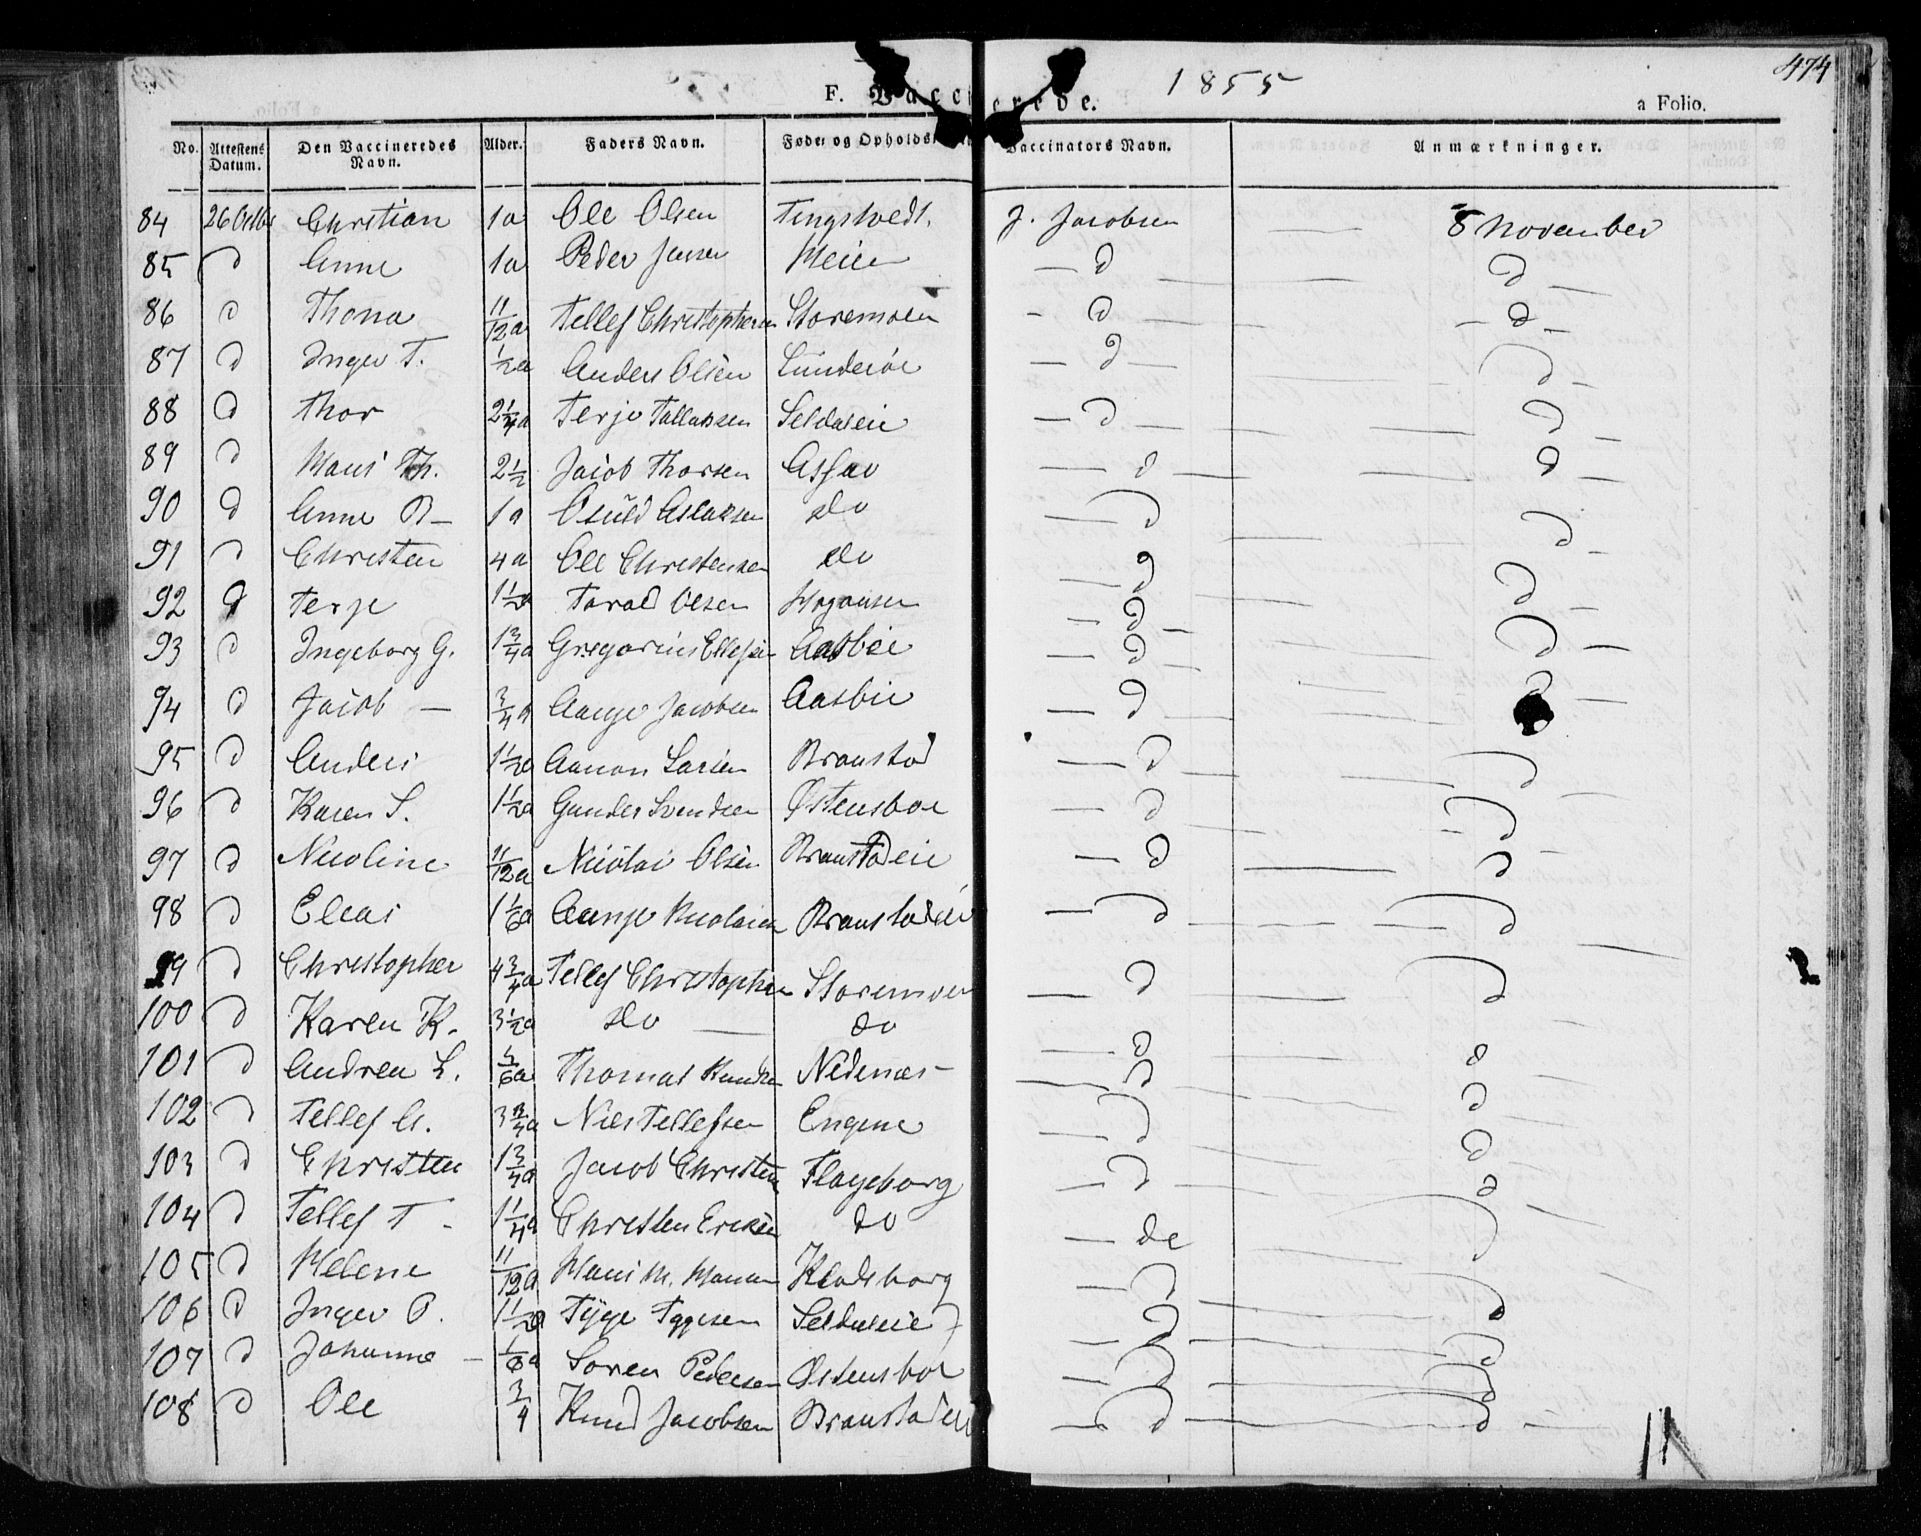 474
1855
F. Vaccinerede.
a Folio.
No. Attestens Datum. Den Vaccineredes Navn. Alder. Faders Navn. Føde- og Opholds Vaccinators Navn. Anmærkninger.
84 26 Octbr Christian 1a Ole Olsen Tingstvedt. J. Jacobsen — 8 November
85 d Anne 1a Peder Jensen Heien — d d
86 d Thona 11/12a Tellef Christophersen Storemoen - d — d —
87 d Inger T. 1/2a Anders Olsen — d — d —
88 d Thor 2 1/4a Terje Tallaksen Seldaleie — d d —
89 d Hans Th. 2 1/2 Jacob Thorsen Asfær — d — d —
90 d Anne B— 1a Osuld Aslaksen do — d d
91 d Christen 4a Ole Christensen do — d d
92 d Terje 1 1/2a Tarald Olsen — d d —
93 d Ingeborg G. 1 3/4a Gregorius Ellefsen Aasbie — d d —
94 d Jacob — 3/4a Aanje Jacobsen Aasbie — d d —
95 d Anders 1 1/2a Aanon Larsen Branstad — d d
96 d Karen S. 1 1/2a Gunder Svendsen Østensboe — d d
97 d Nicoline 11/12a Nicolai Olsen Branstadeie — d — d
98 d Elias 1 1/6a Aanje Nicolaisen Branstadeie — d d
99 d Christopher 4 3/4a Tellef Christophersen Storemoen — d d
100 d Karen K. 3 1/2a do — do — d d
101 d Andrea L. 5/6a Thomas Knudsen Nedenæs — d d
102 d Tellef A. 3 3/4a Niels Tellefsen Engene — d d
103 d Christen 1 3/4a Jacob Christensen Flageborg — d d
104 d Tellef T— 1 1/4a Christen Ericksen do — do d
105 d Helene 11/12a Hans M. Hansen Klodeborg — d d
106 d Inger P. 1 1/2a Tyge Tygesen Seldaleie — d d
107 d Johanne — 1/6a Soren Pedersen Østensboe — d d
108 d Ole 3/4 Knud Jacobsen Branstadeie — d — d —